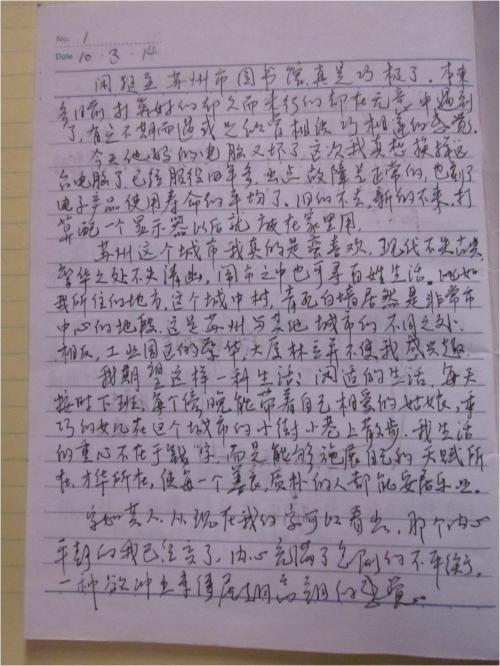 No. 1
Date 10 · 3 · 14
闲逛至苏州市图书馆真是巧极了。本来
多日前打算好的却久而未行的却在无意中遇到
了,有意不期而遇或是似曾相识巧相逢的感觉。
今天他妈的电脑又坏了,这次我真想换掉这
台电脑了,已经服役四年多,出点故障是正常的,也到了
电子产品使用寿命的年均了。旧的不去,新的不来,打
算配一个显示器以后就放在家里用。
苏州这个城市我真的是蛮喜欢,现代不失古典,
繁华之处不失清幽,闹市之中也可寻百姓生活。比如
我所住的地方,这个城中村,青瓦白墙居然是非常市
中心的地段,这是苏州与其他城市的不同之处。
相反,工业园区的繁华,大厦林立并不使我感兴趣。
我期望这样一种生活:闲适的生活,每天
按时下班,每个傍晚能带着自己相爱的姑娘,乖
巧的女儿在这个城市的小街小巷上散步。我生活
的重心不在于 而是能够施展自己的天赋所
在,才华所在,使每一个善良、质朴的人都能安居乐业。
字如其人,从现在我的字可以看出,那个内心
平静的我已经变了,内心充满了 的不平衡,
一种欲冲出 的感觉。